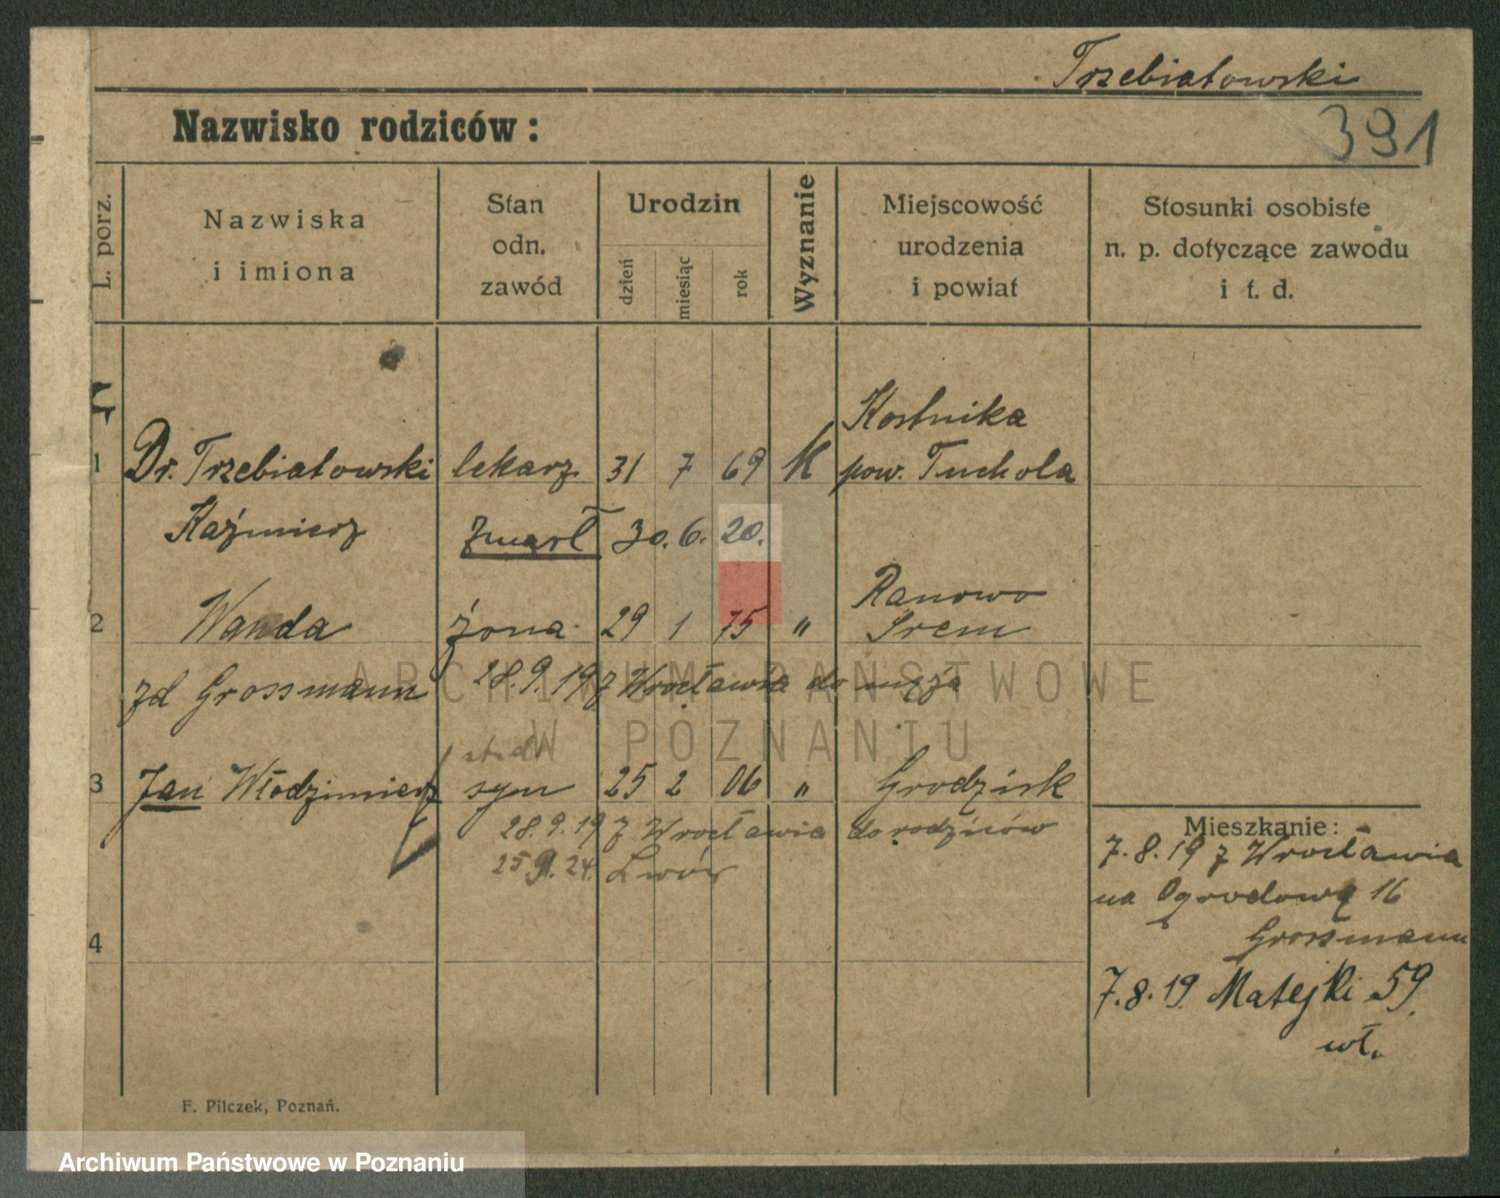 Trzebiatowski
391
Nazwisko rodziców:
L. porz.
Nazwiska
i imiona
Stan
odn.
zawód
Urodzin
dzień
miesiąc
rok
Wyznanie
Miejscowość
urodzenia
i powiat
Stosunki osobiste
n. p. dotyczące zawodu
i t. d.
Kostnika
1 Dr. Trzebiatowski lekarz 31 7 69 K pow. Tuchola
Kaźmierz zmarł 30. 6. 20.
Ranowo
2 Wanda żona 29 1 75 " Śrem
zd Grossmann 28.9.19 z Wrocławia do męża
ARCHIWUM PAŃSTWOWE
W POZNANIU
3 Jan Włodzimierz syn 25 2 06 " Grodzisk
28.9.19 z Wrocławia do rodziców
25.9.24. Lwów
4
Mieszkanie:
7.8.19 z Wrocławia
na Ogrodową 16
Grossmann
7.8.19 Matejki 59.
wł.
F. Pilczek, Poznań.
Archiwum Państwowe w Poznaniu